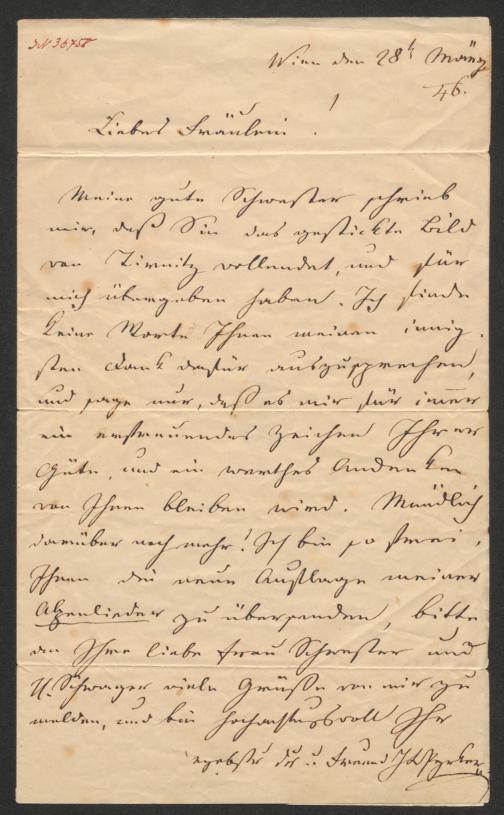 Wien den 28t März
46.
Liebes Fräulein!
Meine gute Schwester schrieb
mir, daß Sie das gestickte Bild
von Tirnitz vollendet, und für
mich übergeben haben. Ich finde
keine Worte Ihnen meinen innig-
sten Dank dafür auszusprechen,
und sage nur, daß es mir für immer
ein erfreuendes Zeichen Ihrer
Güte, und ein werthes Andenken
von Ihnen bleiben wird. Mündlich
darüber noch mehr! Ich bin so frei,
Ihnen die neue Auflage meiner
Alpenlieder zu übersenden, bitte
an Ihre liebe Frau Schwester und
H. Schwager viele Grüße von mir zu
melden, und bin hochachtungsvoll Ihr
u Freund Pyrker